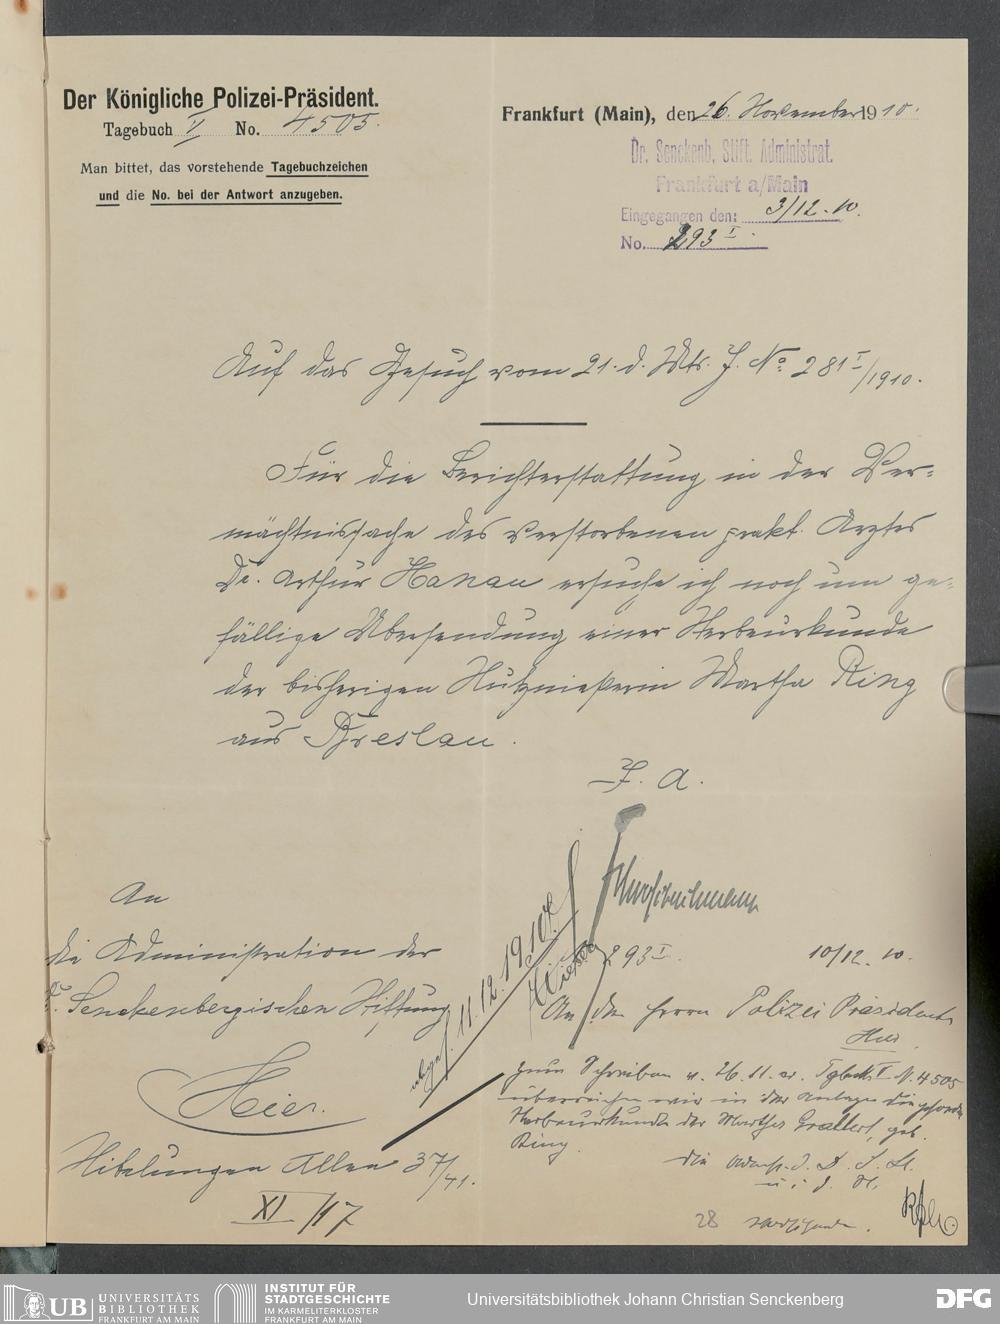 Der Königliche Polizei-Präsident.
Tagebuch V No. 4505.
Man bittet, das vorstehende Tagebuchzeichen
und die No. bei der Antwort anzugeben.
Frankfurt (Main), den 26. November 1910.
Dr. Senckenb. Stift. Administrat.
Frankfurt a/Main
Eingegangen den: 3/12. 10.
No. 293 I.
Auf das Gesuch vom 21. d. Mts. J. No. 281 I/1910.
Für die Berichterstattung in der Ver-
mächtnissache des verstorbenen prakt. Arztes
Dr. Arthur Hanau ersuche ich noch um ge-
fällige Übersendung einer Sterbeurkunde
der bisherigen Nutznießerin Martha Ring
aus Breslau.
J. A.
An
die Administration der
Dr. Senckenbergischen Stiftung
Hier.
Nibelungen Allee 37/41.
XI/17
abges. 11.12.1910.
293 I. 10/12. 10.
An den Herrn Polizei Präsidenten
Hier.
Zum Schreiben v. 26.11. cr. Tgbch. V N. 4505
überreichen wir in der Anlage die
Sterbeurkunde der Martha geb.
Ring.
Die Adm. d. D. S. St.
28
UB UNIVERSITÄTS
BIBLIOTHEK
FRANKFURT AM MAIN
INSTITUT FÜR
STADTGESCHICHTE
IM KARMELITERKLOSTER
FRANKFURT AM MAIN
Universitätsbibliothek Johann Christian Senckenberg
DFG